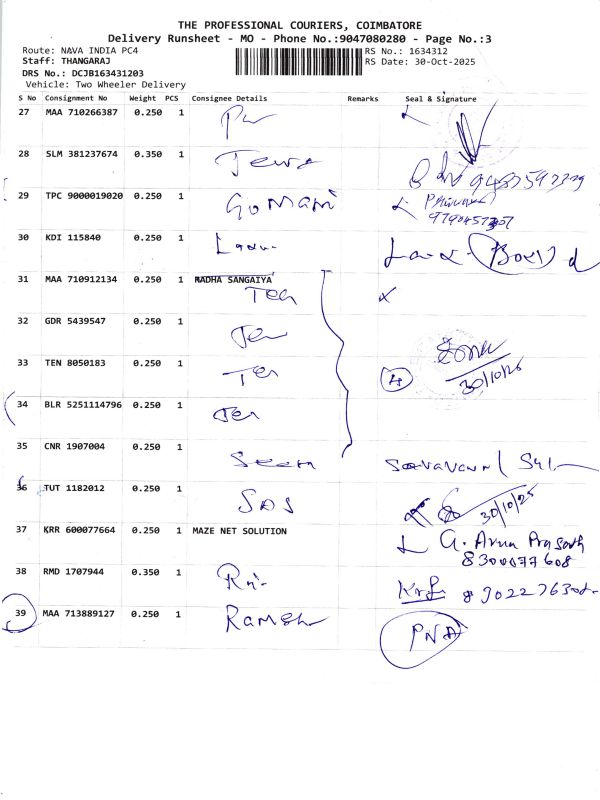 THE PROFESSIONAL COURIERS, COIMBATORE
Delivery Runsheet - MO - Phone No.:9047080280 - Page No.:3
Route: NAVA INDIA PC4 RS No.: 1634312
Staff: THANGARAJ RS Date: 30-Oct-2025
DRS No.: DCJB163431203
Vehicle: Two Wheeler Delivery
S No Consignment No Weight PCS Consignee Details Remarks Seal & Signature
27 MAA 710266387 0.250 1
28 SLM 381237674 0.350 1
29 TPC 9000019020 0.250 1 Gomani
30 KDI 115840 0.250 1
31 MAA 710912134 0.250 1 RADHA SANGAIYA
32 GDR 5439547 0.250 1
33 TEN 8050183 0.250 1 4 30/10/25
34 BLR 5251114796 0.250 1
35 CNR 1907004 0.250 1
36 TUT 1182012 0.250 1 SAS 30/10/25
37 KRR 600077664 0.250 1 MAZE NET SOLUTION G. Arun Prasath
8300077608
38 RMD 1707944 0.350 1
39 MAA 713889127 0.250 1 Ramesh PNA